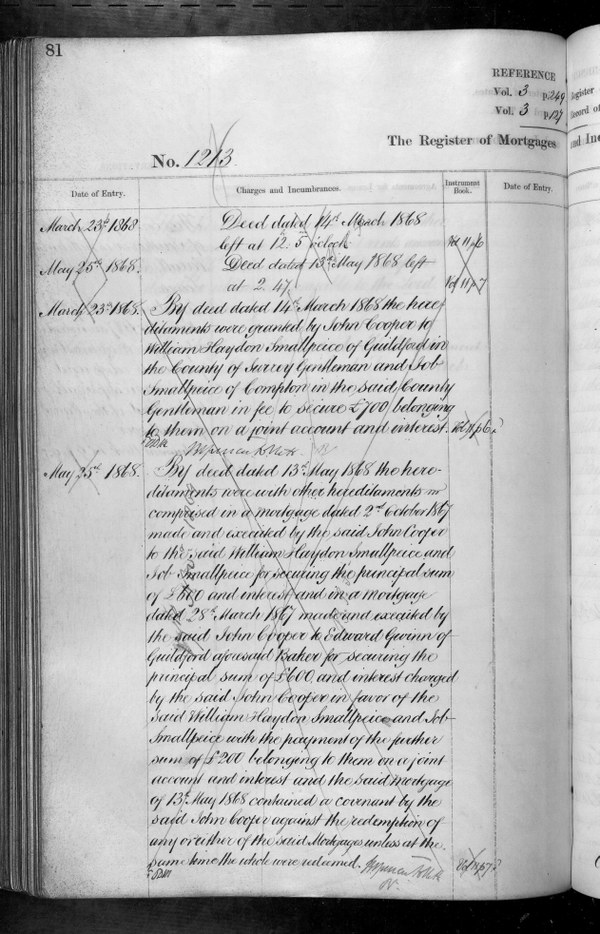 81
REFERENCE
Vol. 3 p. 249
Vol. 3 p. 127
The Register of Mortgages
No. 1213
Date of Entry. Charges and Incumbrances. Instrument Book. Date of Entry.
March 23d 1868 Deed dated 14th March 1868
left at 12. 5 o'clock Vol 11 p 6
May 25th 1868. Deed dated 13th May 1868 left
at 2. 47. Vol 11 p 7
March 23d 1868. By deed dated 14th March 1868 the here-
ditaments were granted by John Cooper to
William Haydon Smallpeice of Guildford in
the County of Surrey Gentleman and Job
Smallpeice of Compton in the said County
Gentleman in fee to secure £700 belonging
to them on a joint account and interest. Vol 11 p 6
May 25th 1868. By deed dated 13th May 1868 the here-
ditaments were with other hereditaments
comprised in a mortgage dated 2d October 1867
made and executed by the said John Cooper
to the said William Haydon Smallpeice and
Job Smallpeice for securing the principal sum
of and interest and in a mortgage
dated 28th March 1867 made and executed by
the said John Cooper to Edward Gwinn of
Guildford aforesaid Baker for securing the
principal sum of £600 and interest charged
by the said John Cooper in favor of the
said William Haydon Smallpeice and Job
Smallpeice with the payment of the further
sum of £200 belonging to them on a joint
account and interest and the said Mortgage
of 13th May 1868 contained a covenant by the
said John Cooper against the redemption of
any or either of the said Mortgages unless at the
same time the whole were redeemed. Vol 11 p 7
Register
Record of
and In